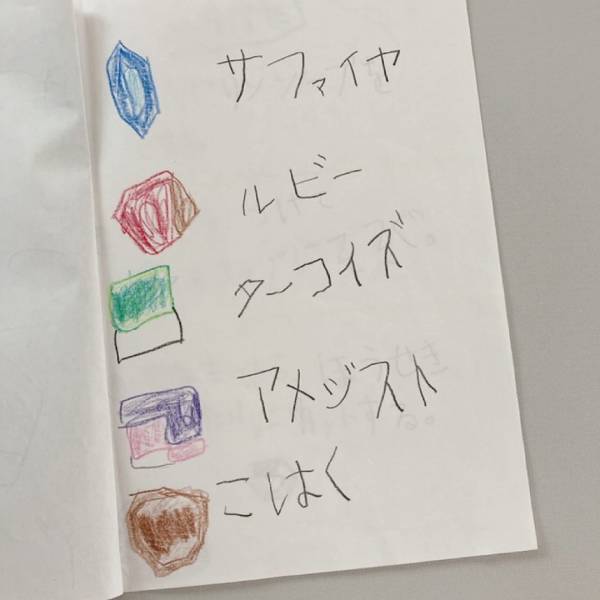 サファイヤ
ルビー
ターコイズ
アメジスト
こはく